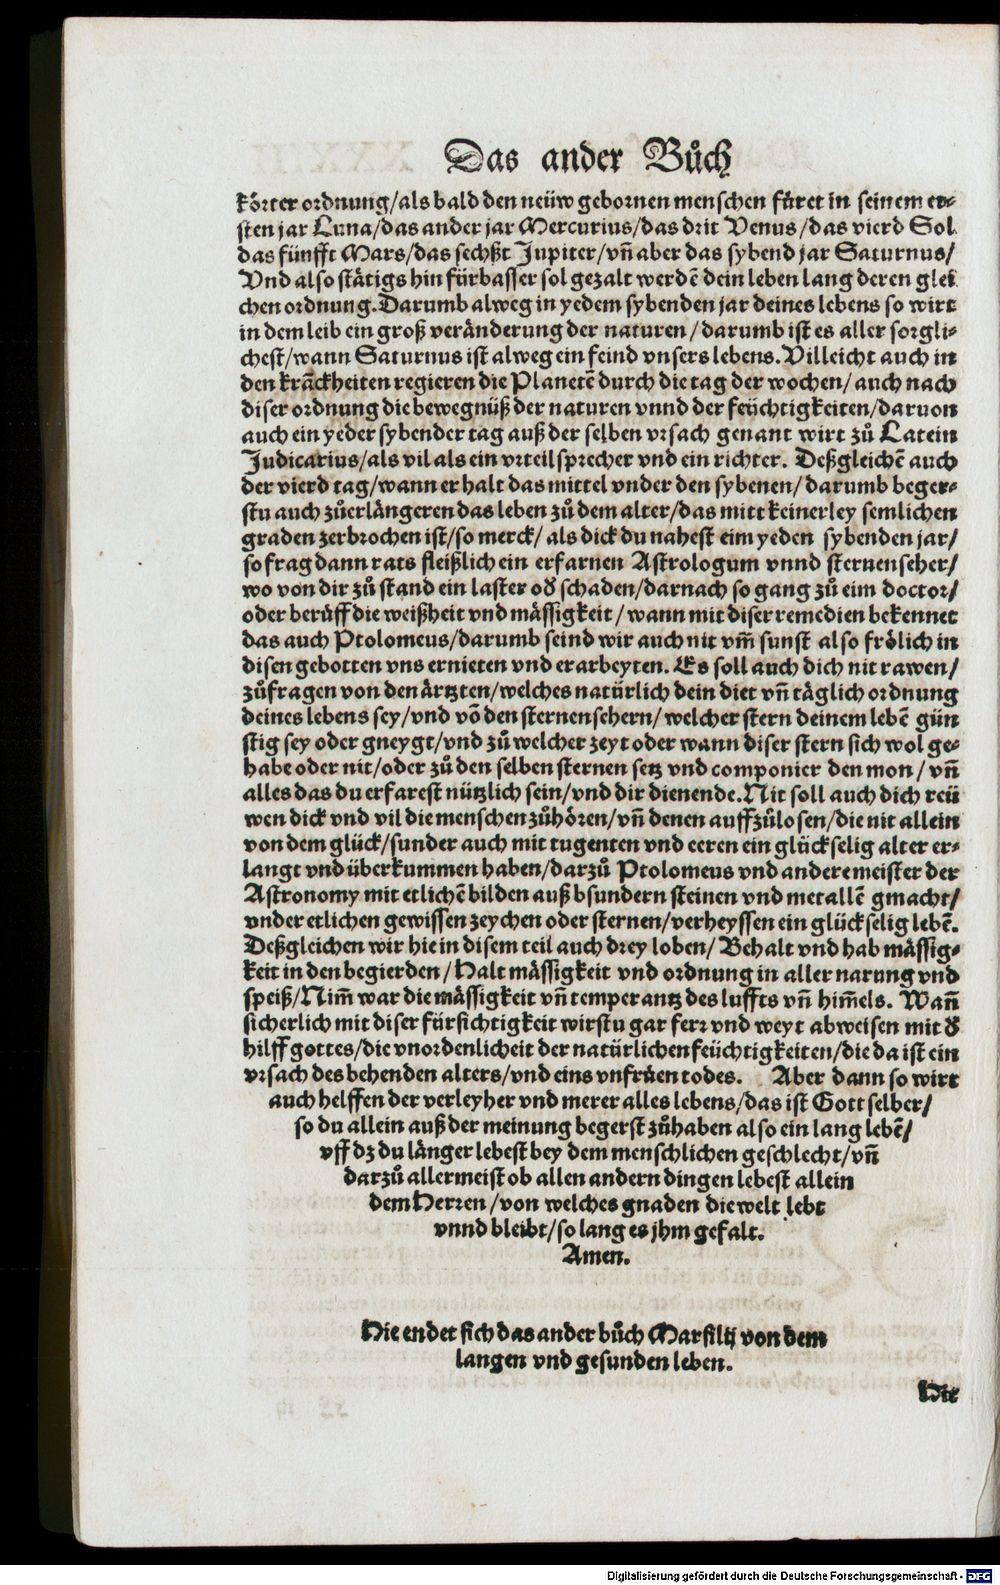 Das ander Bůch
körter ordnung/als bald den neüw gebornen menschen füret in seinem er-
sten jar Luna/das ander jar Mercurius/das drit Venus/das vierd Sol
das fünfft Mars/das sechßt Jupiter/vñ aber das sybend jar Saturnus/
Vnd also stätigs hin fürbasser sol gezalt werdẽ dein leben lang deren glei
chen ordnung. Darumb alweg in yedem sybenden jar deines lebens so wirt
in dem leib ein groß veränderung der naturen/darumb ist es aller sorgli-
chest/wann Saturnus ist alweg ein feind vnsers lebens. Villeicht auch in
den krãckheiten regieren die Planetẽ durch die tag der wochen/auch nach
diser ordnung die bewegnüß der naturen vnnd der feüchtigkeiten/daruon
auch ein yeder sybender tag auß der selben vrsach genant wirt zů Latein
Judicarius/als vil als ein vrteilsprecher vnd ein richter. Deßgleichẽ auch
der vierd tag/wann er halt das mittel vnder den sybenen/darumb beger-
stu auch zůerlängeren das leben zů dem alter/das mitt keinerley semlichen
graden zerbrochen ist/so merck/als dick du nahest eim yeden sybenden jar/
so frag dann rats fleißlich ein erfarnen Astrologum vnnd sternenseher/
wo von dir zů stand ein laster oď schaden/darnach so gang zů eim doctor/
oder berüff die weißheit vnd mässigkeit/wann mit diser remedien bekennet
das auch Ptolomeus/darumb seind wir auch nit vm̃ sunst also frölich in
disen gebotten vns ernieten vnd erarbeyten. Es soll auch dich nit rawen/
zůfragen von den ärtzten/welches natürlich dein diet vñ täglich ordnung
deines lebens sey/vnd võ den sternensehern/welcher stern deinem lebẽ gün
stig sey oder gneygt/vnd zů welcher zeyt oder wann diser stern sich wol ge-
habe oder nit/oder zů den selben sternen setz vnd componier den mon/vñ
alles das du erfarest nützlich sein/vnd dir dienende. Nit soll auch dich reü
wen dick vnd vil die menschen zůhören/vñ denen auffzůlosen/die nit allein
von dem glück/sunder auch mit tugenten vnd eeren ein glückselig alter er-
langt vnd überkummen haben/darzů Ptolomeus vnd andere meister der
Astronomy mit etlichẽ bilden auß bsundern steinen vnd metallẽ gmacht/
vnder etlichen gewissen zeychen oder sternen/verheyssen ein glückselig lebẽ.
Deßgleichen wir hie in disem teil auch drey loben/Behalt vnd hab mässig-
keit in den begierden/Halt mässigkeit vnd ordnung in aller narung vnd
speiß/Nim̃ war die mässigkeit vñ temperantz des luffts vñ him̃els. Wañ
sicherlich mit diser fürsichtigkeit wirstu gar ferr vnd weyt abweisen mit ď
hilff gottes/die vnordenlicheit der natürlichen feüchtigkeiten/die da ist ein
vrsach des behenden alters/vnd eins vnfrüen todes. Aber dann so wirt
auch helffen der verleyher vnd merer alles lebens/das ist Gott selber/
so du allein auß der meinung begerst zůhaben also ein lang lebẽ/
vff dz du länger lebest bey dem menschlichen geschlecht/vñ
darzů allermeist ob allen andern dingen lebest allein
dem Herren/von welches gnaden die welt lebt
vnnd bleibt/so lang es jhm gefalt.
Amen.
Hie endet sich das ander bůch Marsilij von dem
langen vnd gesunden leben.
Hie
Digitalisierung gefördert durch die Deutsche Forschungsgemeinschaft - DFG